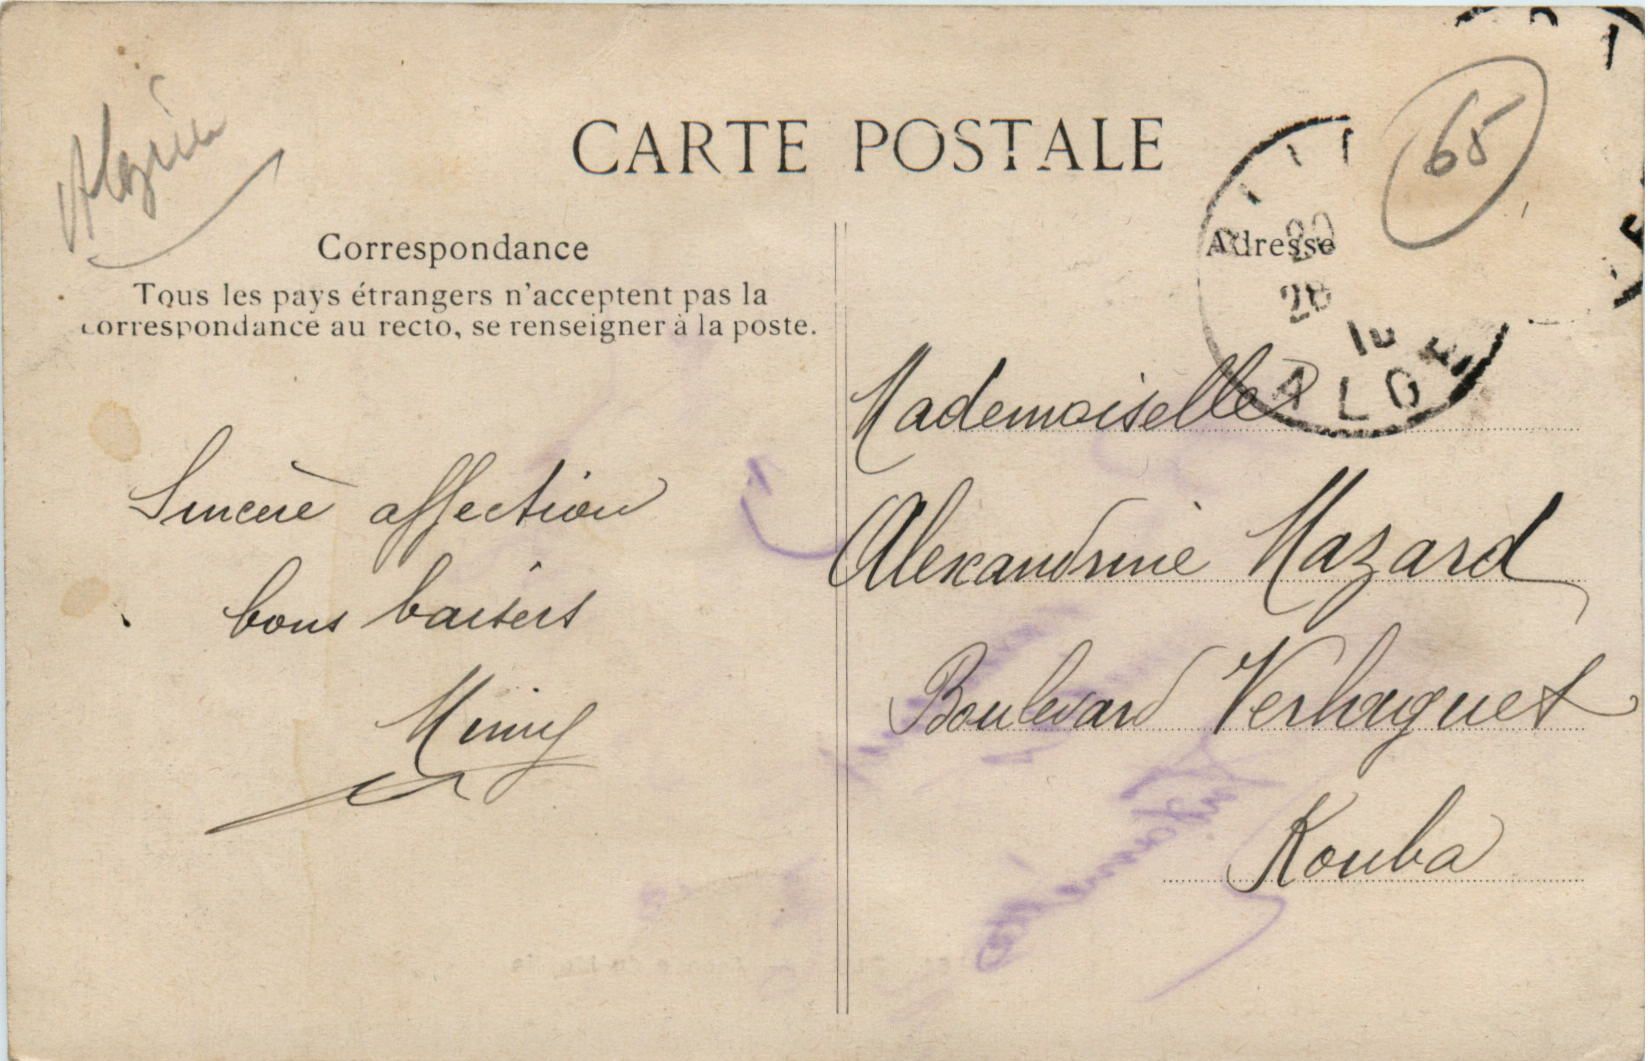 Algérie
CARTE POSTALE
65
Correspondance
Tous les pays étrangers n'acceptent pas la
correspondance au recto, se renseigner à la poste.
Adresse
20
ALGE
Sincère affection
bons baisers
Mimy
Mademoiselle
Alexandrine Mazard
Boulevard Verhaguet
Kouba